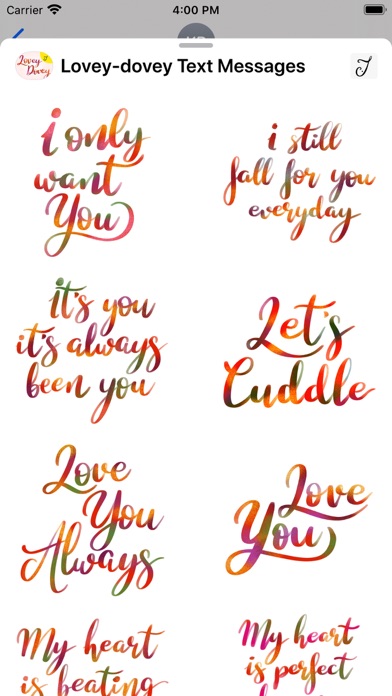 Carrier 4:00 PM
Lovey Dovey
Lovey-dovey Text Messages
i only
want
You
i still
fall for you
everyday
it's you
it's always
been you
Let's
Cuddle
Love
You
Always
Love
You
My heart
is beating
My heart
is perfect